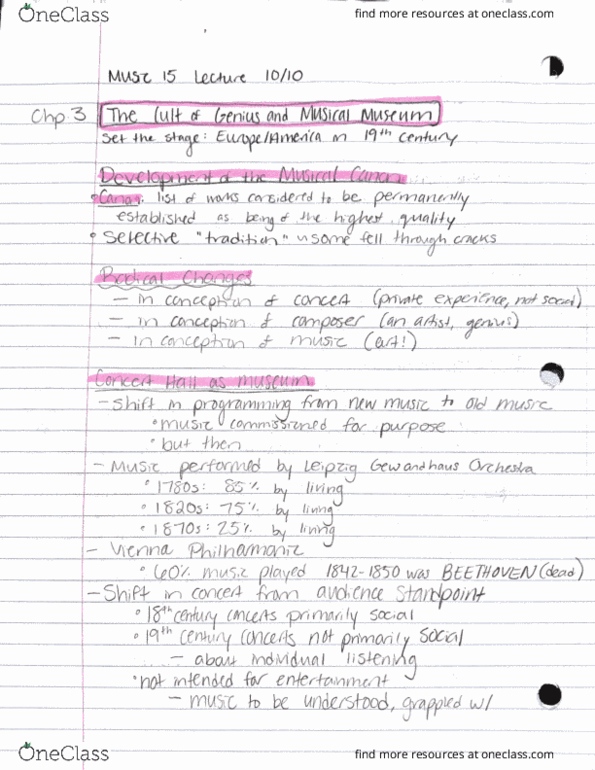 OneClass
find more resources at oneclass.com
Music 15 Lecture 10/10
Chp. 3 The Cult of Genius and Musical Museum
Set the stage: Europe/America in 19th century
Development of the Musical Canon
• Canon: list of works considered to be permanently
established as being of the highest quality
• Selective "tradition" some fell through cracks
Radical Changes
– in conception of concert (private experience, not social)
– in conception of composer (an artist, genius)
– in conception of music (art!)
Concert Hall as museum
– Shift in programming from new music to old music
• music commissioned for purpose
• but then
– Music performed by Leipzig Gewandhaus Orchestra
• 1780s: 85% by living
• 1820s: 75% by living
• 1870s: 25% by living
– Vienna Philharmonic
• 60% music played 1842-1850 was BEETHOVEN (dead)
– Shift in concert from audience standpoint
• 18th century concerts primarily social
• 19th century concerts not primarily social
– about individual listening
• not intended for entertainment
– music to be understood, grappled w/
OneClass
find more resources at oneclass.com